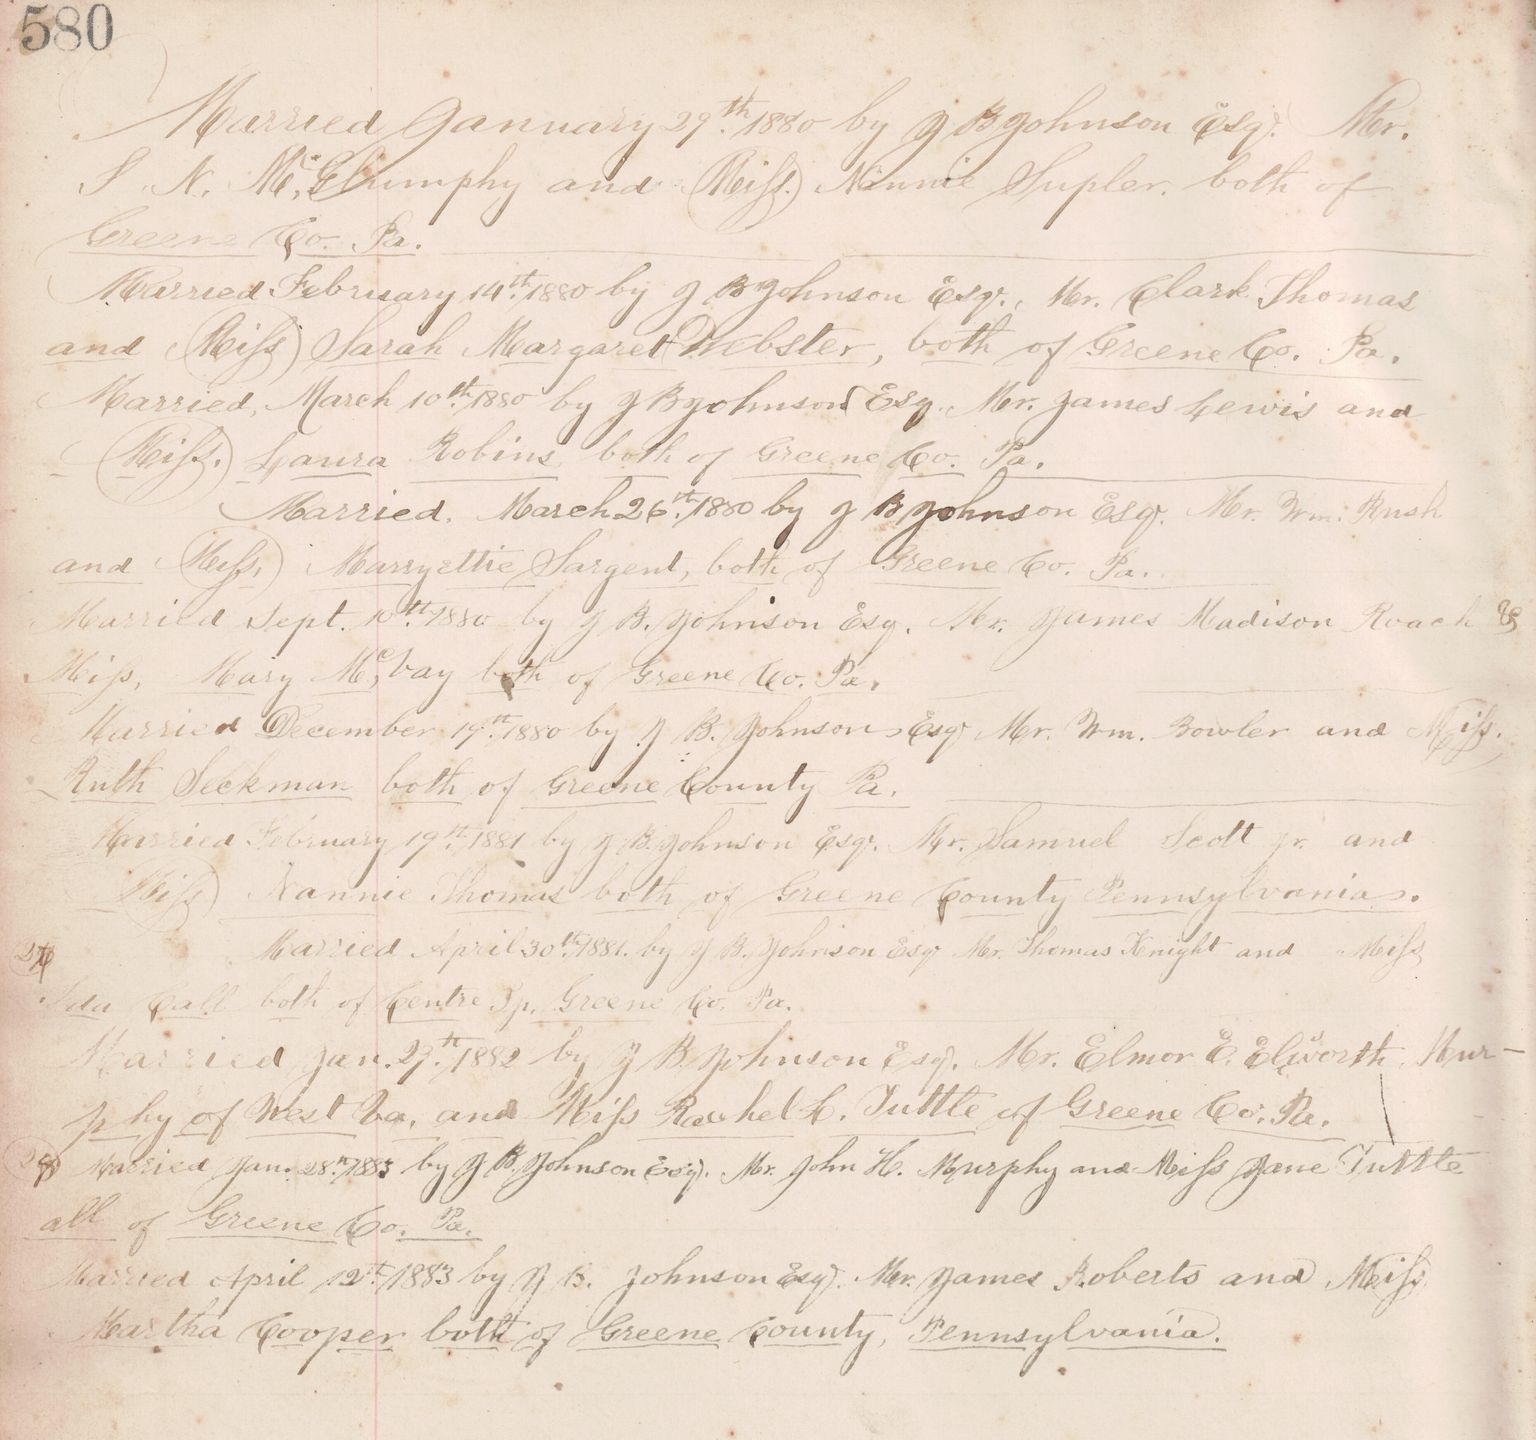 580
Married January 29th 1880 by J B Johnson Esq. Mr.
S. N. Mc.Glumphy and (Miss.) Ninnie Supler. both of
Greene Co. Pa.
Married February 14th 1880 by J B Johnson Esq., Mr. Clark Thomas
and (Miss) Sarah Margaret Webster, both of Greene Co. Pa.
Married, March 10th 1880 by J B Johnson Esq. Mr. James Lewis and
(Miss.) Laura Robins both of Greene Co. Pa.
Married. March 26th 1880 by J B Johnson Esq. Mr. Wm. Rush
and (Miss,) Marryettie Sargent, both of Greene Co. Pa.
Married Sept. 10th 1880 by J B. Johnson Esq. Mr. James Madison Roach &
Miss, Mary Mc,Vay both of Greene Co. Pa.
Married December 19th 1880 by J B. Johnson Esq Mr. Wm. Bowler and Miss.
Ruth Seckman both of Greene County Pa.
Married February 19th 1881 by J B. Johnson Esq. Mr. Samuel Scott Jr. and
Miss) Nannie Thomas both of Greene County Pennsylvania.
Married April 30th 1881. by J B. Johnson Esq Mr. Thomas Knight and Miss
Ida Call both of Centre Tp. Greene Co. Pa.
Married Jan. 29th 1882 by J B. Johnson Esq. Mr. Elmor E. Elsworth Mur-
phy of West Va. and Miss Rachel C. Tuttle of Greene Co. Pa.
Married Jan. 28th 1883 by J B. Johnson Esq). Mr. John H. Murphy and Miss Jane Tuttle
all of Greene Co. Pa.
Married April 12th 1883 by J B. Johnson Esq). Mr. James Roberts and Miss
Martha Cooper both of Greene County, Pennsylvania.